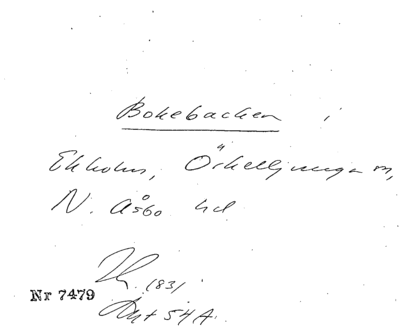 Bokebacken i
Ekholm, Örkelljunga sn,
N. Åsbo hd
1831
Nr 7479
Akt 54 A.